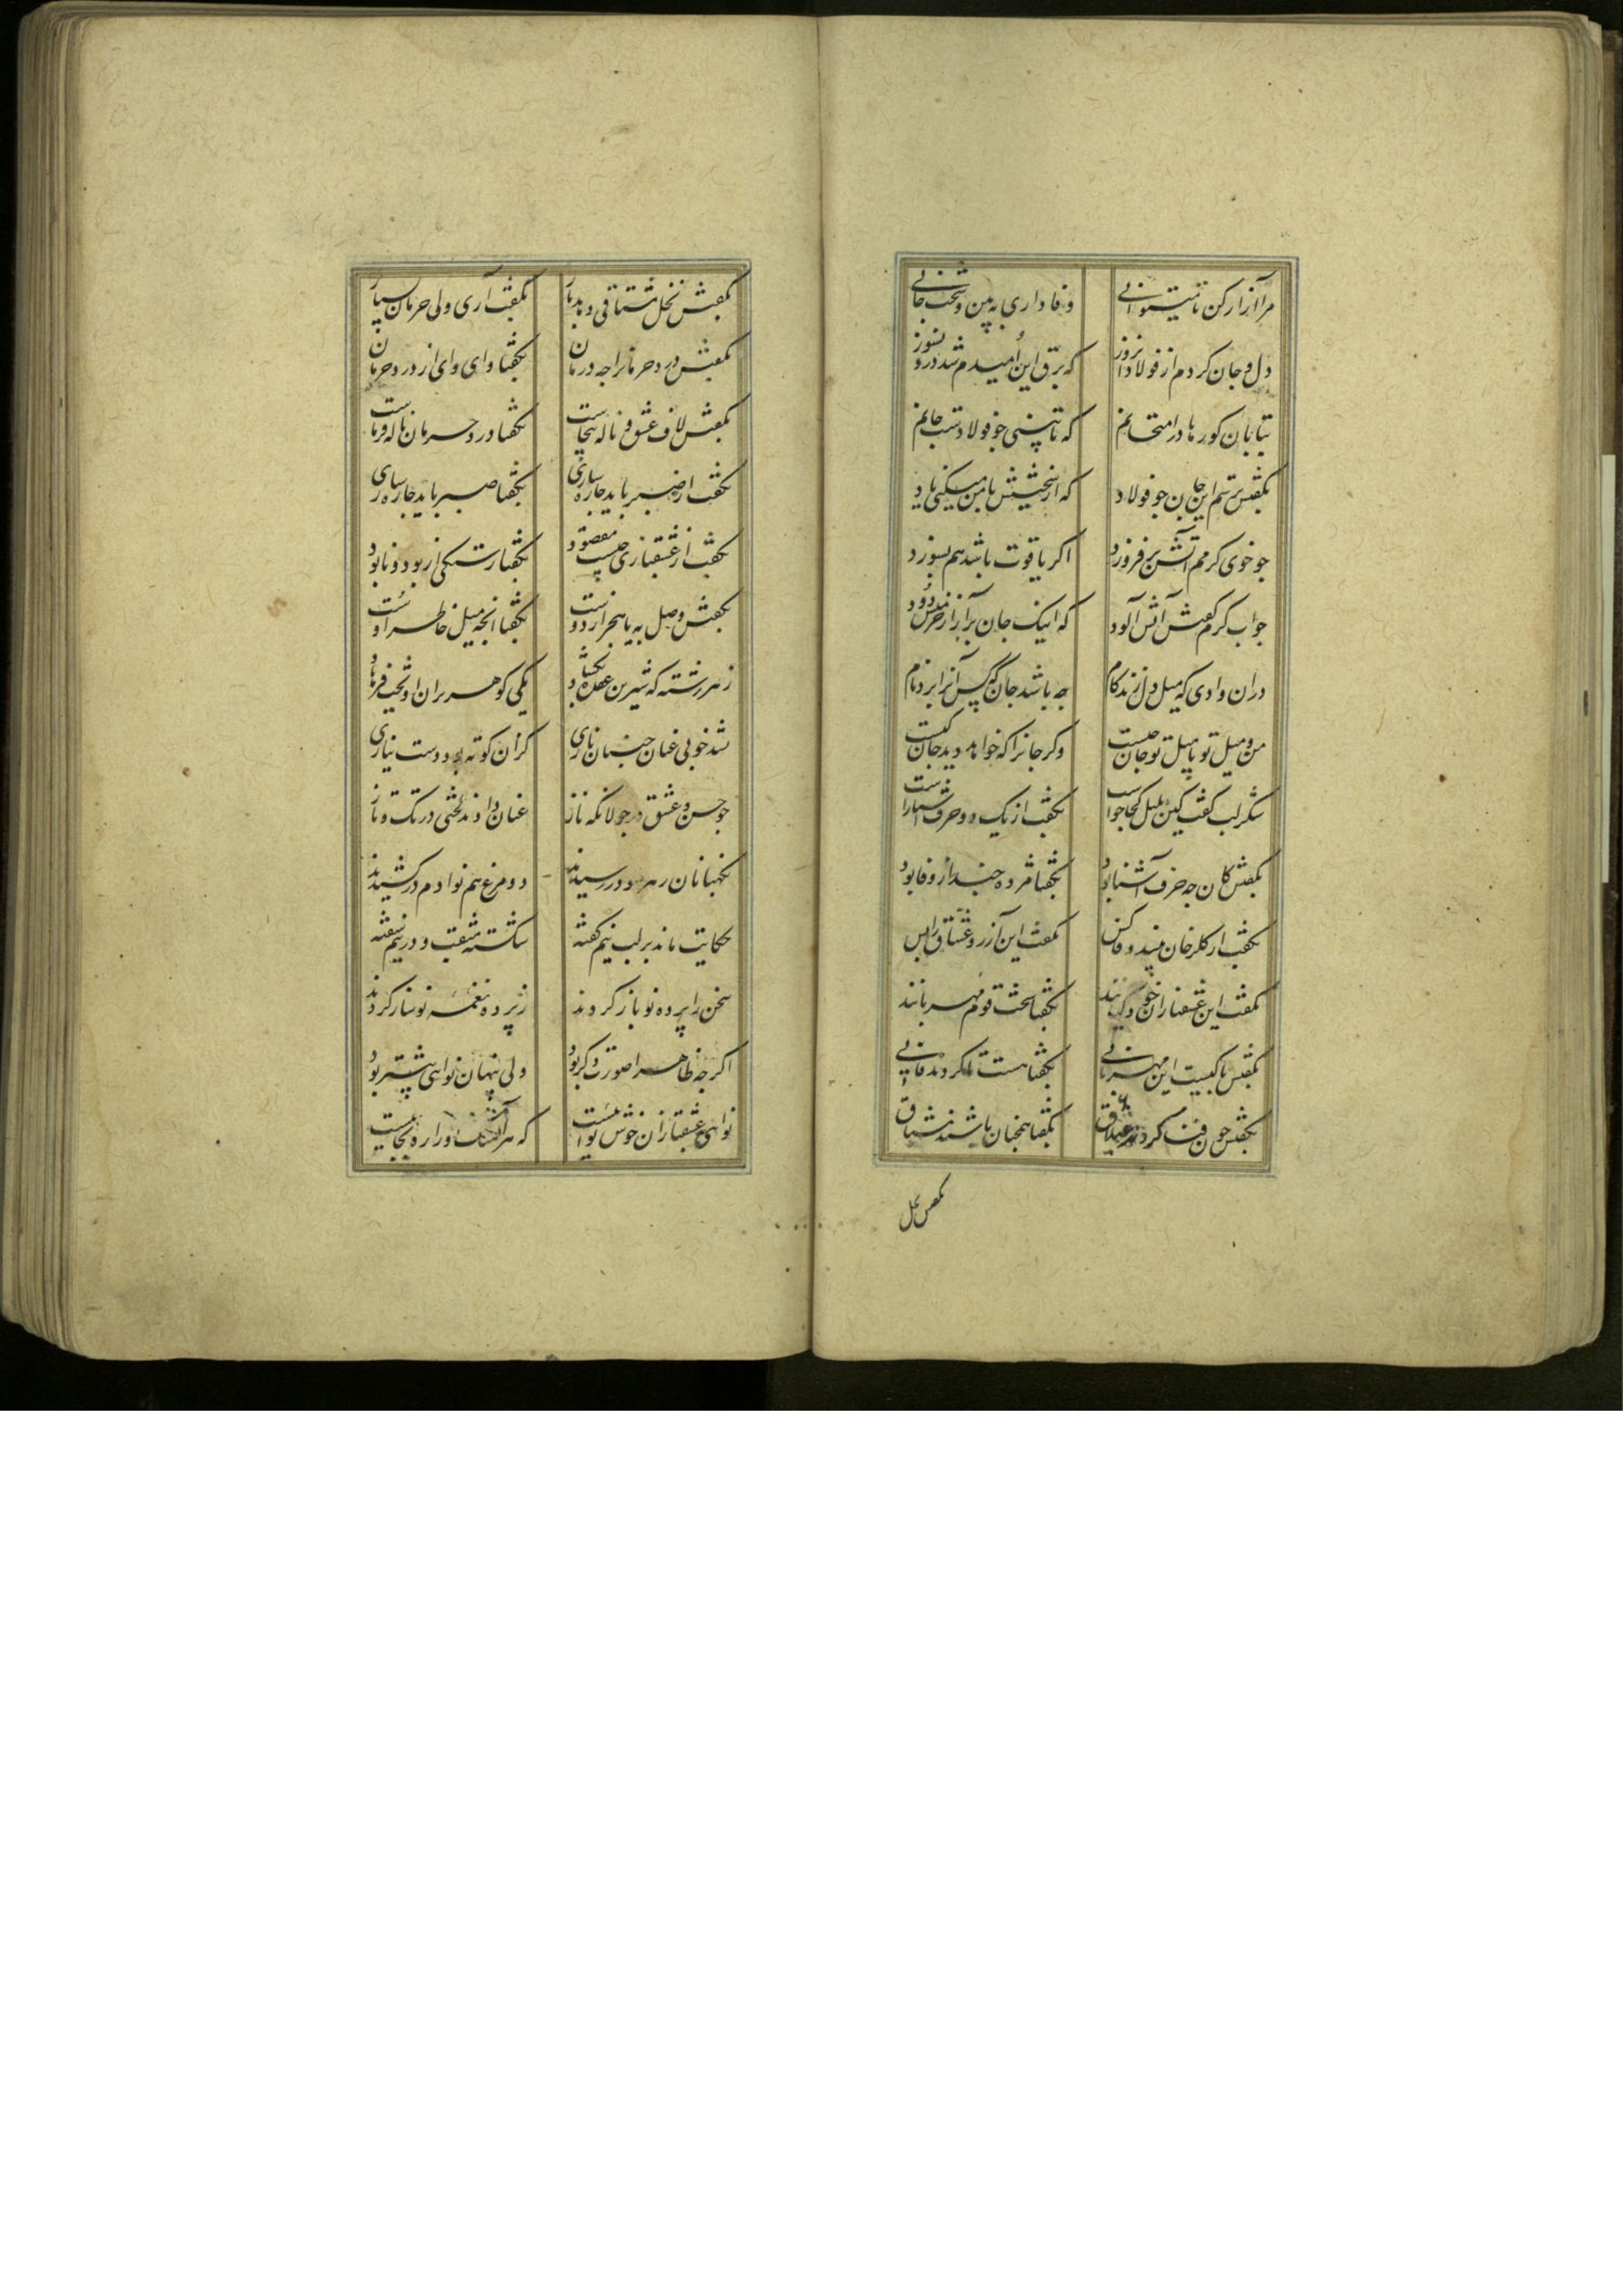 مرا آزار کن تا میتوانی وفاداری به بین و سخت جانی
دل و جان کردم از فولاد امروز که برق این امیدم شد درو سوز
بتابان کورها در امتحانم که تا بینی چو فولادست جانم
بگفتش ترسم این جان چو فولاد که از سختیش با من میکنی یاد
چو خوی گرمم آتش برفروزد اگر یاقوت باشد هم بسوزد
جواب گرم گفتش آتش آلود که اینک جان برآر از خرمنش دود
دران وادی که میل دل زند کام چه باشد جان که کس آنرا برد نام
من و میل تو با میل تو جان چیست وگر جانرا که خواهد دید جان کیست
شکر لب گفت کین میل از کجا خاست بگفت از یک دو حرف آشنا راست
بگفتش کان چه حرف آشنا بود بگفتا مژده چند از وفا بود
بگفت از گلرخان بیند وفا کس بگفت این آرزو عشاق را بس
بگفت این عشقبازان خود کیانند بگفتا سخت قوم مهربانند
بگفتش تا کیست این مهربانی بگفتا هست تا گردند فانی
بگفتش چون فنا گردند عشاق بگفتا همچنان باشند مشتاق
بگفتش نخل
بگفتش نخل مشتاقی دهد بار بگفت آری ولی حرمان بسیار
بگفتش درد حرمانرا چه درمان بگفتا وای وای از درد حرمان
بگفتش لاف عشق و ناله بیجاست بگفتا درد حرمان ناله فرماست
بگفت از صبر باید چاره سازی بگفتا صبر باید چاره سازی
بگفت از عشقبازی چیست مقصود بگفتا رستگی از بود و نابود
بگفتش وصل به یا هجر از دوست بگفتا آنچه میل خاطر اوست
ز هر رشته که شیرین عقده بگشاد یکی گوهر بران آویخت فرهاد
نشد خوبی عنان جنبان نازی کزان کوته بود دست نیازی
چو حسن و عشق در جولانگه ناز عنان دادند لختی در تک و تاز
نگهبانان ز هر سو در رسیدند دو مرغ هم نوا دم در کشیدند
حکایت ماند بر لب نیم گفته شکسته مثقب و در نیم سفته
سخن را پرده نو باز کردند ز پرده نغمه نو ساز کردند
اگر چه ظاهرا صورت دگر بود ولی پنهان نوای بیشتر بود
نوای عشقبازان خوش نواییست که هر آهنگ او را ره بجاییست